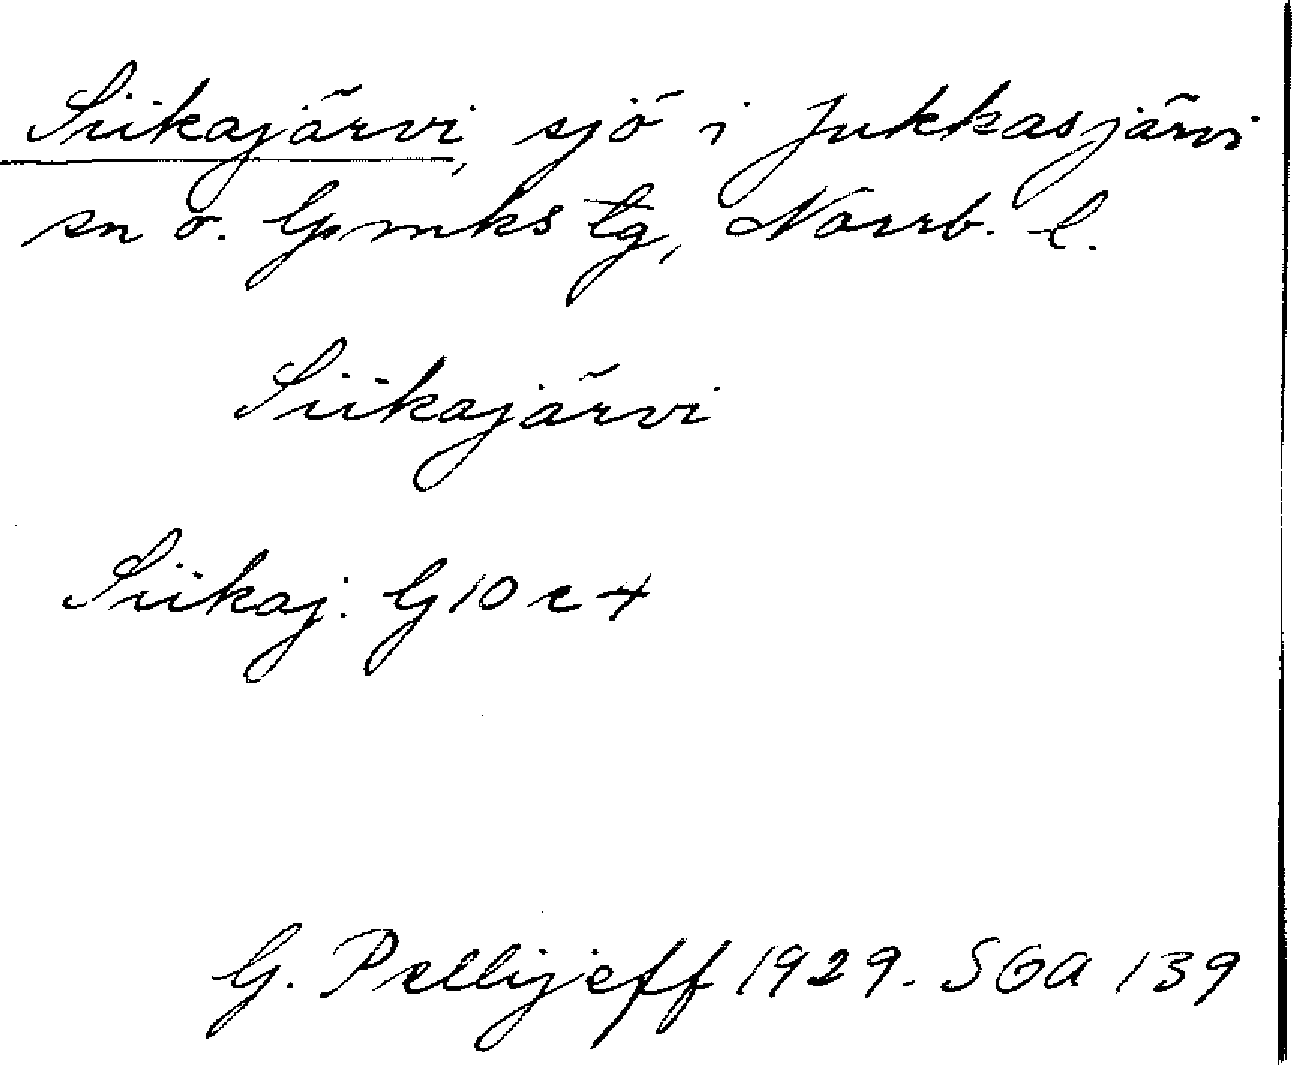 Siikajärvi, sjö i Jukkasjärvi
sn o. Gpmks tg, Norrb. l.
Siikajärvi
Siikaj. G 10 c 4
G. Pellijeff 1929. SGA 139